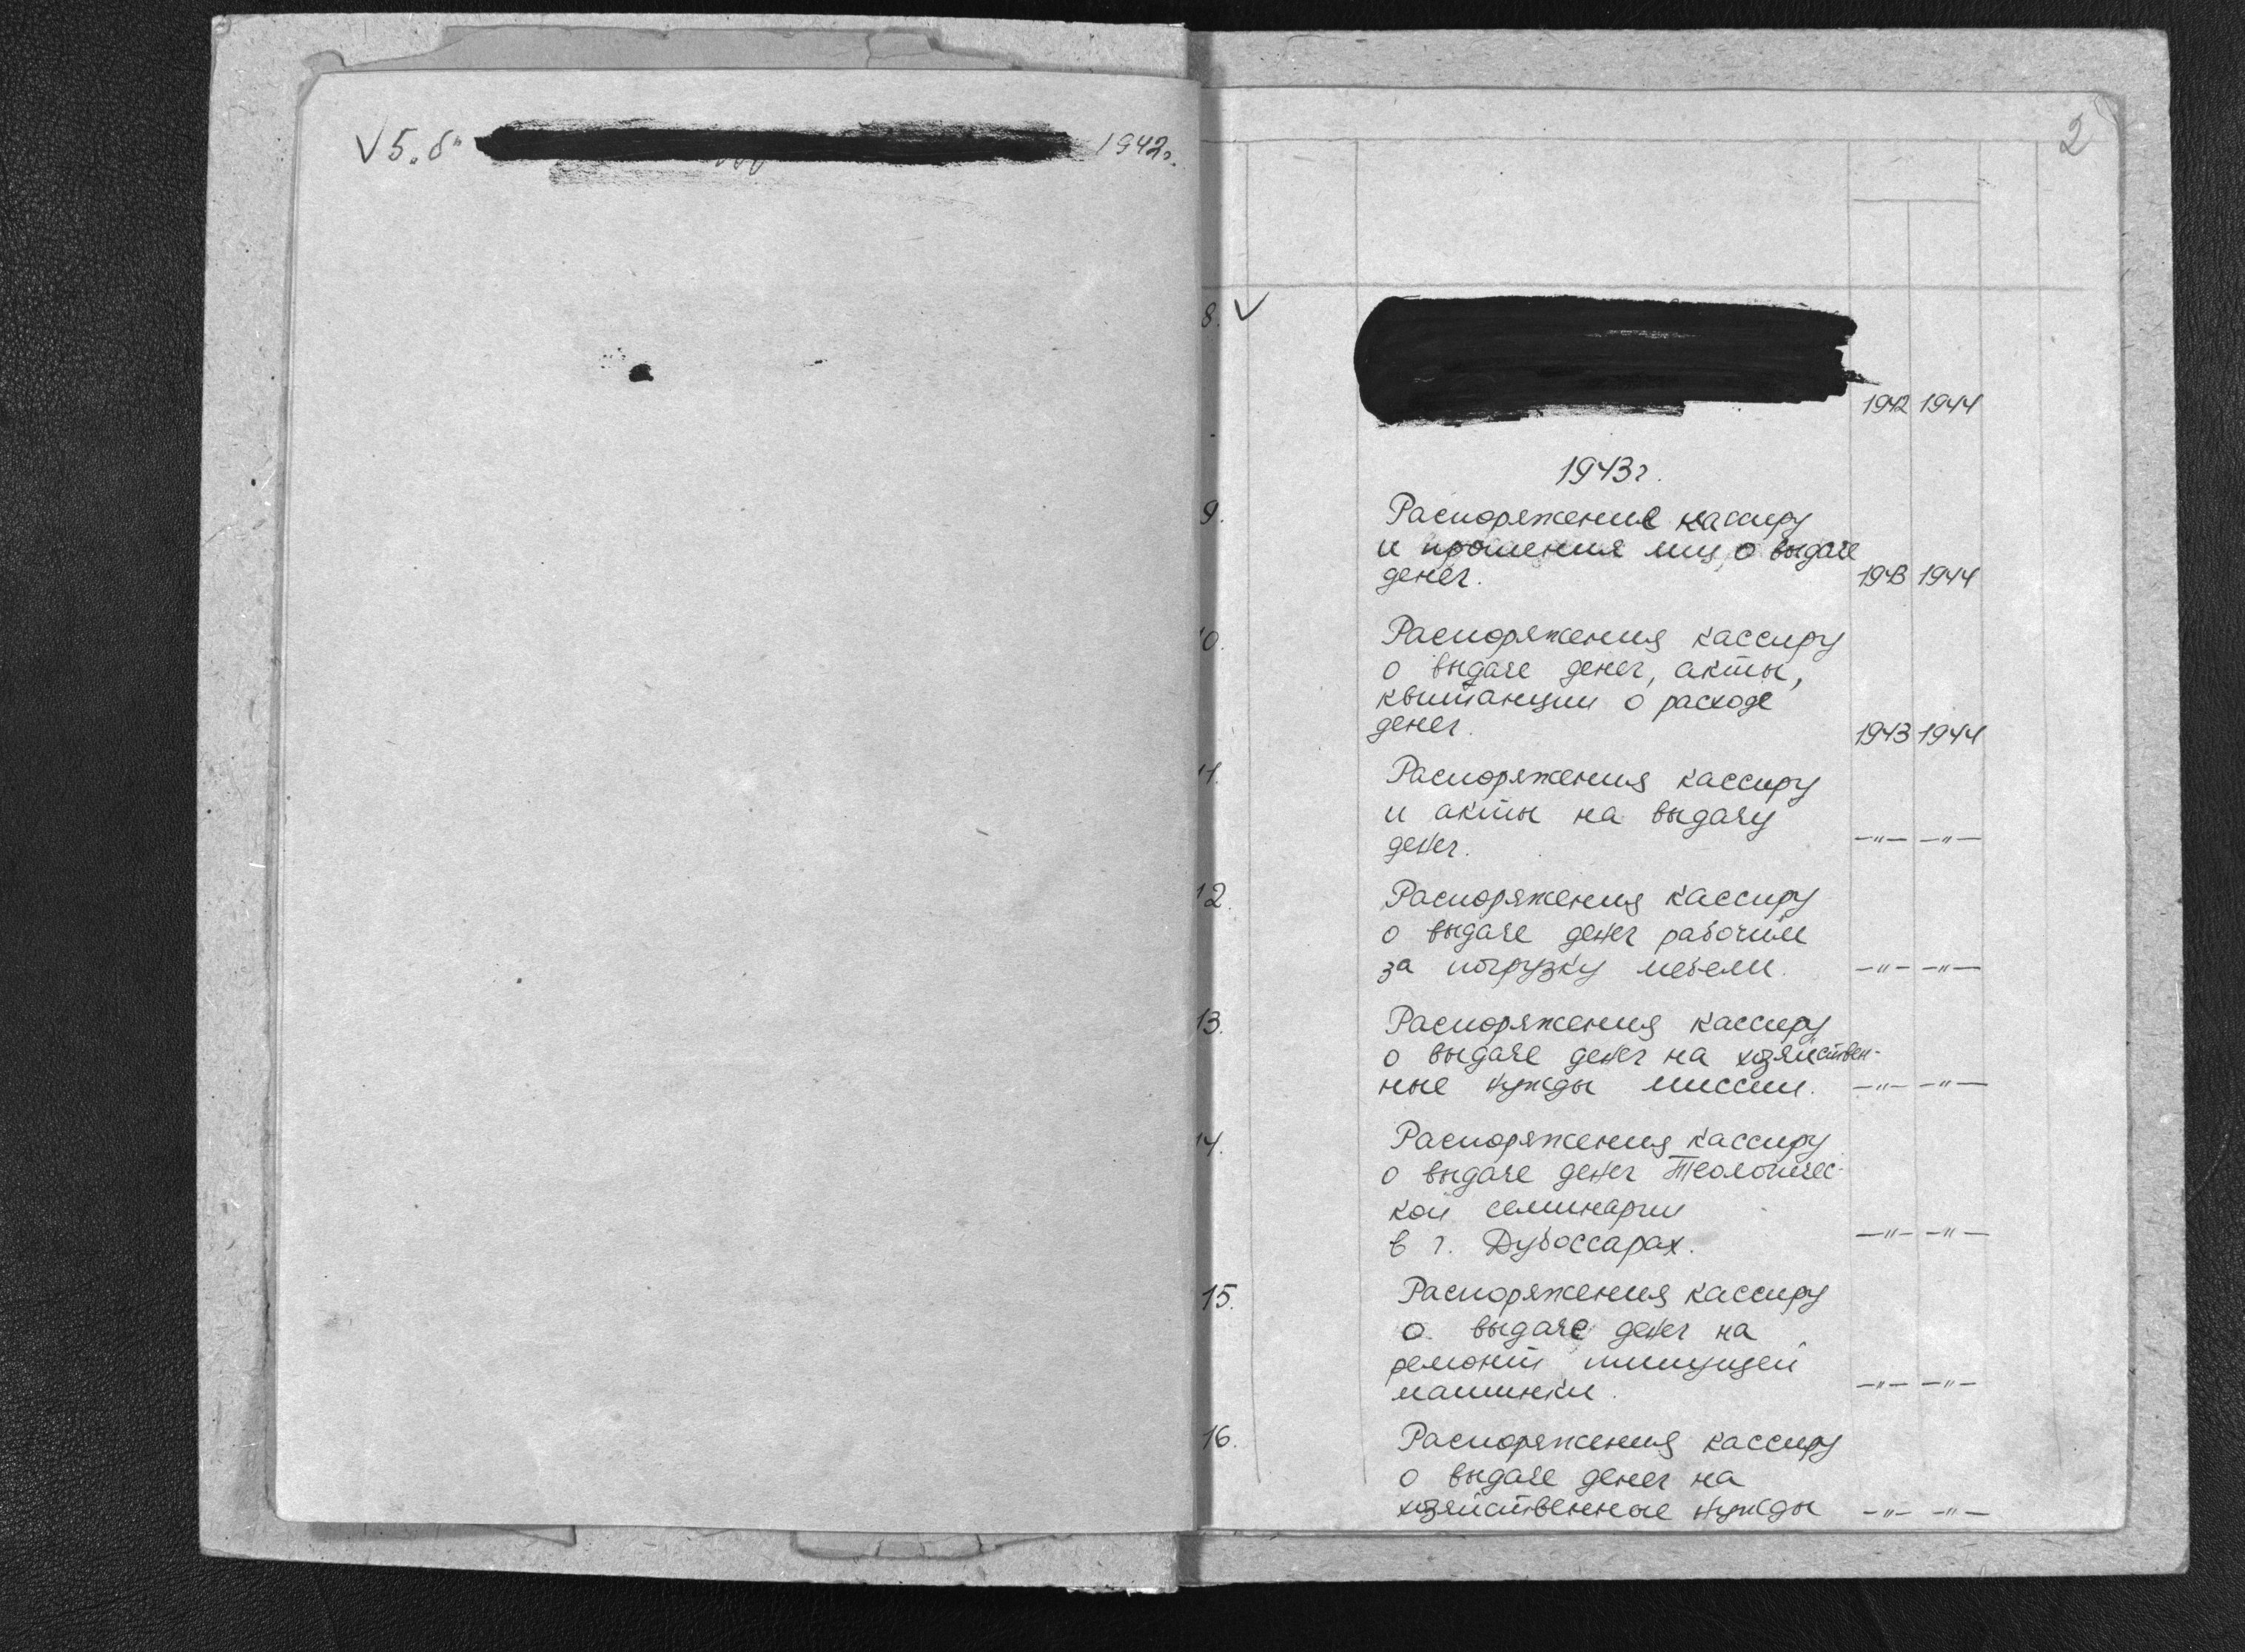 √ 5. б" 1942г.
2
8. √
1942 1944
1943г.
9. Распоряжение кассиру
и прошения лиц о выдаче
денег. 1943 1944
10. Распоряжения кассиру
о выдаче денег, акты,
квитанции о расходе
денег. 1943 1944
11. Распоряжения кассиру
и акты на выдачу
денег. —"— —"—
12. Распоряжения кассиру
о выдаче денег рабочим
за погрузку мебели. —"— —"—
13. Распоряжения кассиру
о выдаче денег на хозяйствен-
ные нужды миссии. —"— —"—
14. Распоряжения кассиру
о выдаче денег Теологичес-
кой семинарии
в г. Дубоссарах. —"— —"—
15. Распоряжения кассиру
о выдаче денег на
ремонт пишущей
машинки. —"— —"—
16. Распоряжения кассиру
о выдаче денег на
хозяйственные нужды —"— —"—